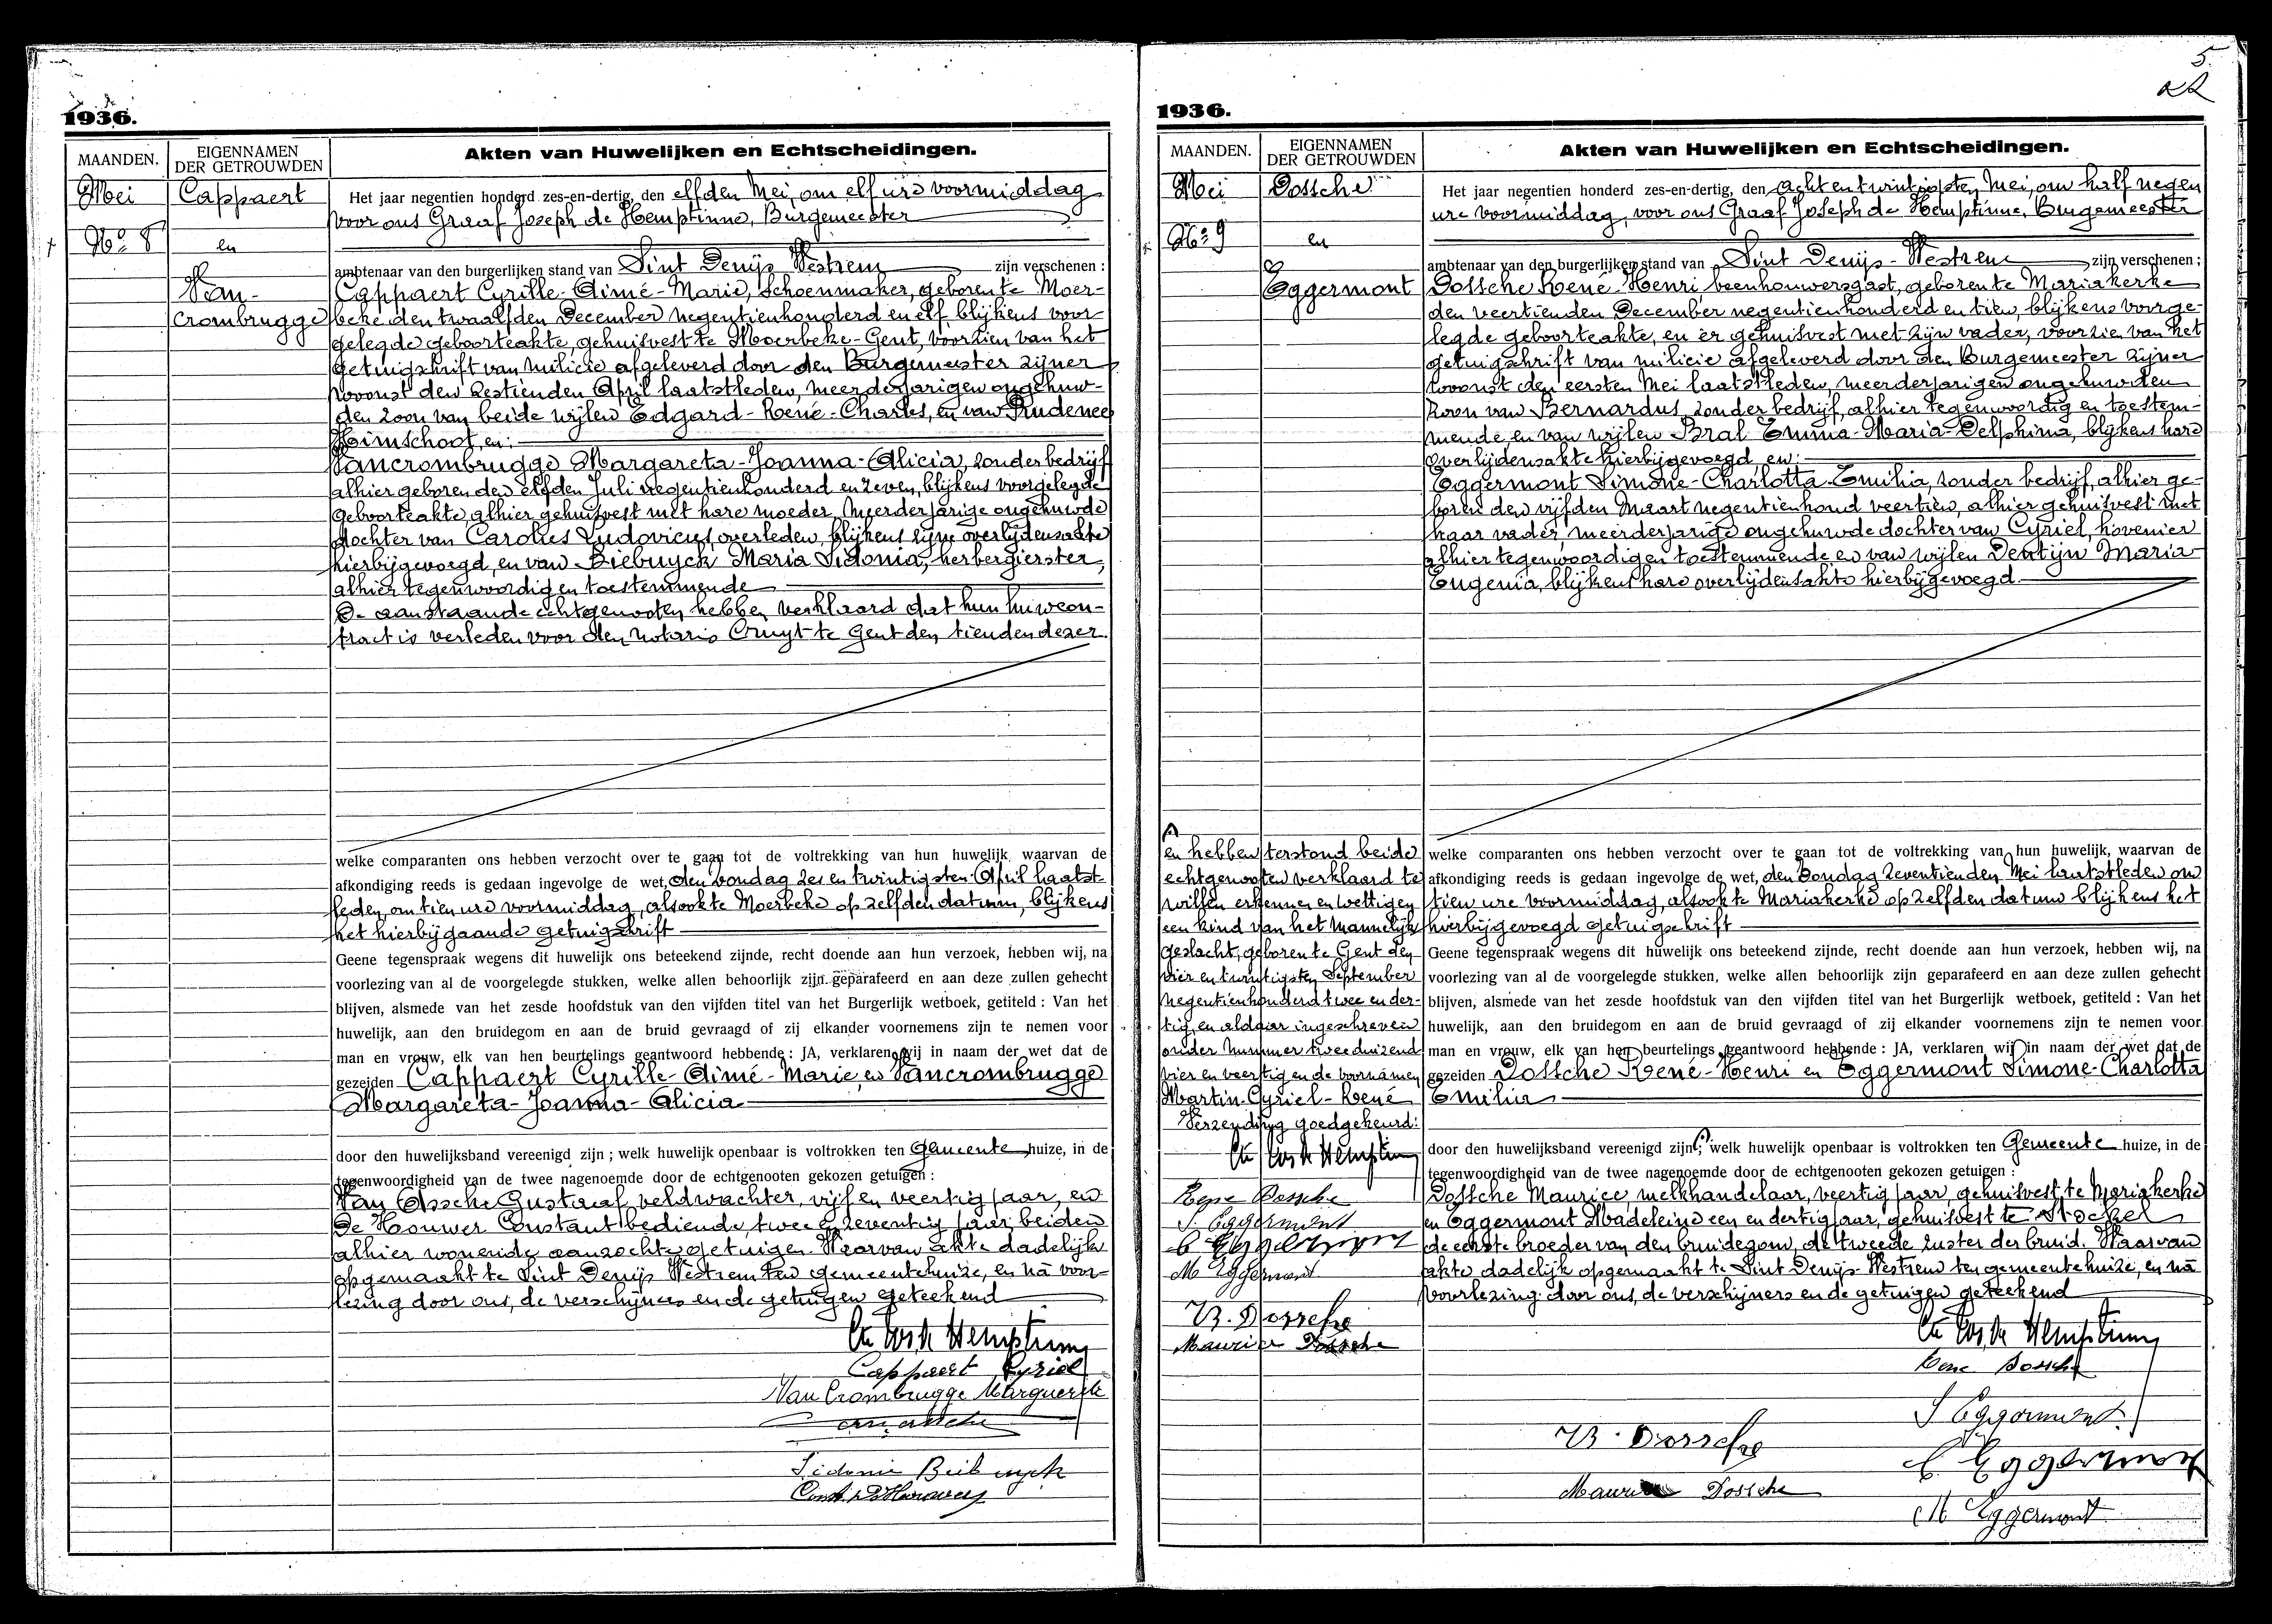 1936.
MAANDEN.
EIGENNAMEN
DER GETROUWDEN
Akten van Huwelijken en Echtscheidingen.
Mei
Cappaert
No 8
en
Van-
crombrugge
Het jaar negentien honderd zes-en-dertig, den elfden Mei, om elf ure voormiddag
voor ons Graaf Joseph de Hemptinne, Burgemeester
ambtenaar van den burgerlijken stand van Sint Denijs Westrem zijn verschenen :
Cappaert Cyrille-Aimé-Marie, schoenmaker, geboren te Moer-
beke den twaalfden December negentienhonderd en elf blijkens voor
gelegde geboorteakte, gehuisvest te Moerbeke-Gent, voorzien van het
getuigschrift van milicie afgeleverd door den Burgemeester zijner
woonst den zestienden April laatstleden, meerderjarigen ongehuw-
den zoon van beide wijlen Edgard-René-Charles, en van Prudence
Heimschoot, en:
Vancrombrugge Margareta-Joanna-Alicia, zonder bedrijf
alhier geboren den elfden Juli negentienhonderd en zeven, blijkens voorgelegde
geboorteakte, alhier gehuisvest met hare moeder, meerderjarige ongehuwde
dochter van Carolus Ludovicus, overleden, blijkens zijne overlijdensakte
hierbijgevoegd, en van Biebuyck Maria Sidonia, herbergierster,
alhier tegenwoordig en toestemmende
De aanstaande echtgenooten hebben verklaard dat hun huwcon-
tract is verleden voor den notaris Cruyt te Gent den tienden dezer.
welke comparanten ons hebben verzocht over te gaan tot de voltrekking van hun huwelijk waarvan de
afkondiging reeds is gedaan ingevolge de wet, den zondag zes en twintigsten April laatst-
leden, om tien ure voormiddag, alsook te Moerbeke op zelfden datum, blijkens
het hierbijgaande getuigschrift
Geene tegenspraak wegens dit huwelijk ons beteekend zijnde, recht doende aan hun verzoek, hebben wij, na
voorlezing van al de voorgelegde stukken, welke allen behoorlijk zijn geparafeerd en aan deze zullen gehecht
blijven, alsmede van het zesde hoofdstuk van den vijfden titel van het Burgerlijk wetboek, getiteld : Van het
huwelijk, aan den bruidegom en aan de bruid gevraagd of zij elkander voornemens zijn te nemen voor
man en vrouw, elk van hen beurtelings geantwoord hebbende : JA, verklaren wij in naam der wet dat de
gezeiden Cappaert Cyrille-Aimé-Marie, en Vancrombrugge
Margareta-Joanna-Alicia
door den huwelijksband vereenigd zijn ; welk huwelijk openbaar is voltrokken ten Gemeente huize, in de
tegenwoordigheid van de twee nagenoemde door de echtgenooten gekozen getuigen :
Van Assche Gustaaf, veldwachter, vijf en veertig jaar, en
De Houwer Constant bediende, twee en zeventig jaar, beiden
alhier wonende aanzochte getuigen. Waarvan akte dadelijk
opgemaakt te Sint Denijs Westrem ten gemeentehuize, en na voor-
lezing door ons, de verschijners en de getuigen geteekend
Cte Jos de Hemptinne
Cappaert Cyriel
Van Crombrugge Marguerite
Sidonie Beibuyck
5.
1936.
MAANDEN.
EIGENNAMEN
DER GETROUWDEN
Akten van Huwelijken en Echtscheidingen.
Mei
Dossche
No 9
en
Eggermont
Het jaar negentien honderd zes-en-dertig, den acht en twintigsten Mei, om half negen
ure voormiddag, voor ons Graaf Joseph de Hemptinne, Burgemeester
ambtenaar van den burgerlijken stand van Sint Denijs-Westrem zijn verschenen ;
Dossche René-Henri, beenhouwersgast, geboren te Mariakerke
den veertienden December negentienhonderd en tien, blijkens voorge-
legde geboorteakte, en er gehuisvest met zijn vader, voorzien van het
getuigschrift van milicie afgeleverd door den Burgemeester zijner
woonst den eersten Mei laatstleden, meerderjarigen ongehuwden
zoon van Bernardus, zonder bedrijf, alhier tegenwoordig en toestem-
mende, en van wijlen Bral Emma-Maria-Delphina, blijkens hare
overlijdensakte hierbijgevoegd, en:
Eggermont Simone-Charlotta-Emilia, zonder bedrijf, alhier ge-
boren den vijfden Maart negentienhond veertien, alhier gehuisvest met
haar vader, meerderjarige ongehuwde dochter van Cyriel, hovenier
alhier tegenwoordig en toestemmende en van wijlen Dentijn Maria
Eugenia, blijkens hare overlijdensakte hierbijgevoegd.
welke comparanten ons hebben verzocht over te gaan tot de voltrekking van hun huwelijk, waarvan de
afkondiging reeds is gedaan ingevolge de wet, den zondag zeventienden Mei laatstleden om
tien ure voormiddag, alsook te Mariakerke op zelfden datum blijkens het
hierbijgevoegd getuigschrift
Geene tegenspraak wegens dit huwelijk ons beteekend zijnde, recht doende aan hun verzoek, hebben wij, na
voorlezing van al de voorgelegde stukken, welke allen behoorlijk zijn geparafeerd en aan deze zullen gehecht
blijven, alsmede van het zesde hoofdstuk van den vijfden titel van het Burgerlijk wetboek, getiteld : Van het
huwelijk, aan den bruidegom en aan de bruid gevraagd of zij elkander voornemens zijn te nemen voor
man en vrouw, elk van hen beurtelings geantwoord hebbende : JA, verklaren wij in naam der wet dat de
gezeiden Dossche René-Henri en Eggermont Simone-Charlotta
Emilia
door den huwelijksband vereenigd zijn ; welk huwelijk openbaar is voltrokken ten Gemeente huize, in de
tegenwoordigheid van de twee nagenoemde door de echtgenooten gekozen getuigen :
Dossche Maurice, melkhandelaar, veertig jaar, gehuisvest te Mariakerke
en Eggermont Madeleine een en dertig jaar, gehuisvest te Stockel
de eerste broeder van den bruidegom, de tweede zuster der bruid. Waarvan
akte dadelijk opgemaakt te Sint Denijs-Westrem ten gemeentehuize, en na
voorlezing door ons, de verschijners en de getuigen geteekend
en hebben terstond beide
echtgenooten verklaard te
willen erkennen en wettigen
een kind van het mannelijk
geslacht, geboren te Gent den
vier en twintigsten September
negentienhonderd twee en der-
tig, en aldaar ingeschreven
onder nummer tweeduizend
vier en veertig en de voornamen
Martin-Cyriel-René
Verzending goedgekeurd:
Cte Jos de Hemptinne
Rene Dossche
S. Eggermont
C Eggermont
M Eggermont
B. Dossche
Maurice Dossche
Cte Jos de Hemptinne
Rene Dossche
S Eggermont
B. Dossche
C Eggermont
Maurice Dossche
M Eggermont